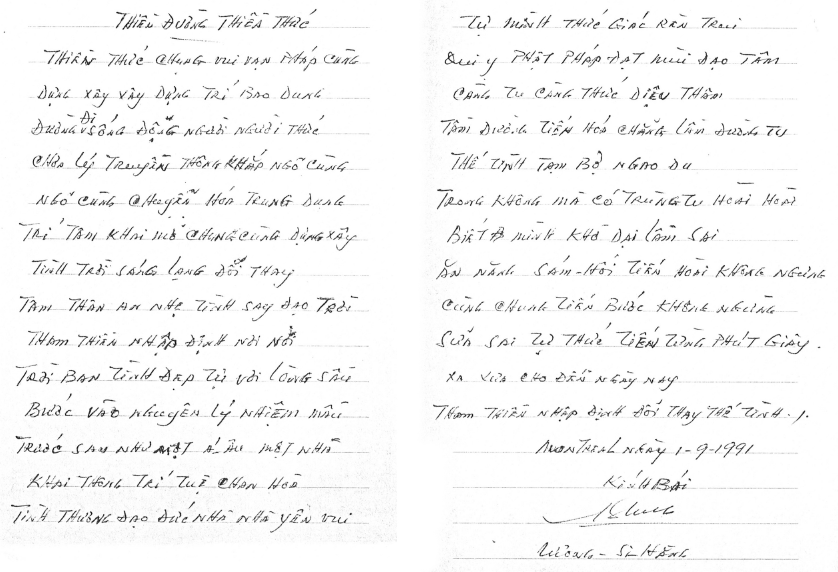 THIÊN ĐƯỜNG THIỀN THỨC
THIỀN THỨC CHUNG VUI VẠN PHÁP CÙNG
DỰNG XÂY XÂY DỰNG TRÍ BAO DUNG
ĐƯỜNG ĐI SỐNG ĐỘNG NGƯỜI NGƯỜI THỨC
CHƠN LÝ TRUYỀN THÔNG KHẮP NGÕ CÙNG
NGÕ CÙNG CHUYỂN HÓA TRUNG DUNG
TRÍ TÂM KHAI MỞ CHUNG CÙNG DỰNG XÂY
TÌNH TRỜI SÁNG LẠNG ĐỔI THAY
TÂM THÂN AN NHẸ TÌNH SAY ĐẠO TRỜI
THAM THIỀN NHẬP ĐỊNH NƠI NƠI
TRỜI BAN TÌNH ĐẸP TUYỆT VỜI LÒNG SÂU
BƯỚC VÀO NGUYÊN LÝ NHIỆM MẦU
TRƯỚC SAU NHƯ MỘT Á ÂU MỘT NHÀ
KHAI THÔNG TRÍ TUỆ CHAN HÒA
TÌNH THƯƠNG ĐẠO ĐỨC NHÀ NHÀ YÊN VUI
TỰ MÌNH THỨC GIÁC RÈN TRUI
QUI Y PHẬT PHÁP ĐẠT MÙI ĐẠO TÂM
CÀNG TU CÀNG THỨC DIỆU THÂM
TẦM ĐƯỜNG TIẾN HÓA CHẲNG LẦM ĐƯỜNG TU
THẾ TÌNH TẠM BỢ NGAO DU
TRONG KHÔNG MÀ CÓ TRÙNG TU HOÀI HOÀI
BIẾT MÌNH KHỜ DẠI LẦM SAI
ĂN NĂN SÁM-HỐI TIẾN HOÀI KHÔNG NGỪNG
CÙNG CHUNG TIẾN BƯỚC KHÔNG NGỪNG
SỬA SAI TỰ THỨC TIẾN TỪNG PHÚT GIÂY.
XA XƯA CHO ĐẾN NGÀY NAY
THAM THIỀN NHẬP ĐỊNH ĐỔI THAY THẾ TÌNH./.
MONTREAL NGÀY 1-9-1991
KÍNH BÁI
LƯƠNG - SĨ HẰNG